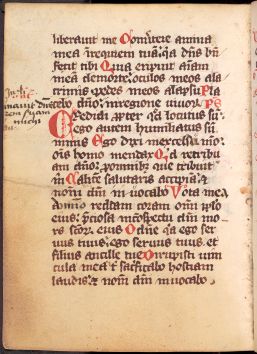 liberauit me Conuertere anima
mea in requiem tua: qa dns bn
fecit tibi Quia eripuit aiam
mea de morte: oculos meos a la
crimis pedes meos a lapsu Pla
cebo dno: in regione uiuor Ps
Credidi ppter qd locutus su:
ego autem humiliatus su
nimis Ego dixi in excessu mo:
ois homo mendax Qd retribu
am dno: p omnibz que retribuit
m Calice salutaris accipia: &
nom dni inuocabo Vota mea
domino reddam coram omi pplo
eius: pciosa in cospectu dni mo
rs scor eius O dne qa ego ser
uus tuus: ego seruus tuus et
filius ancille tue Dirupisti uin
cula mea t sacficabo hostiam
laudis: & nom dni inuocabo